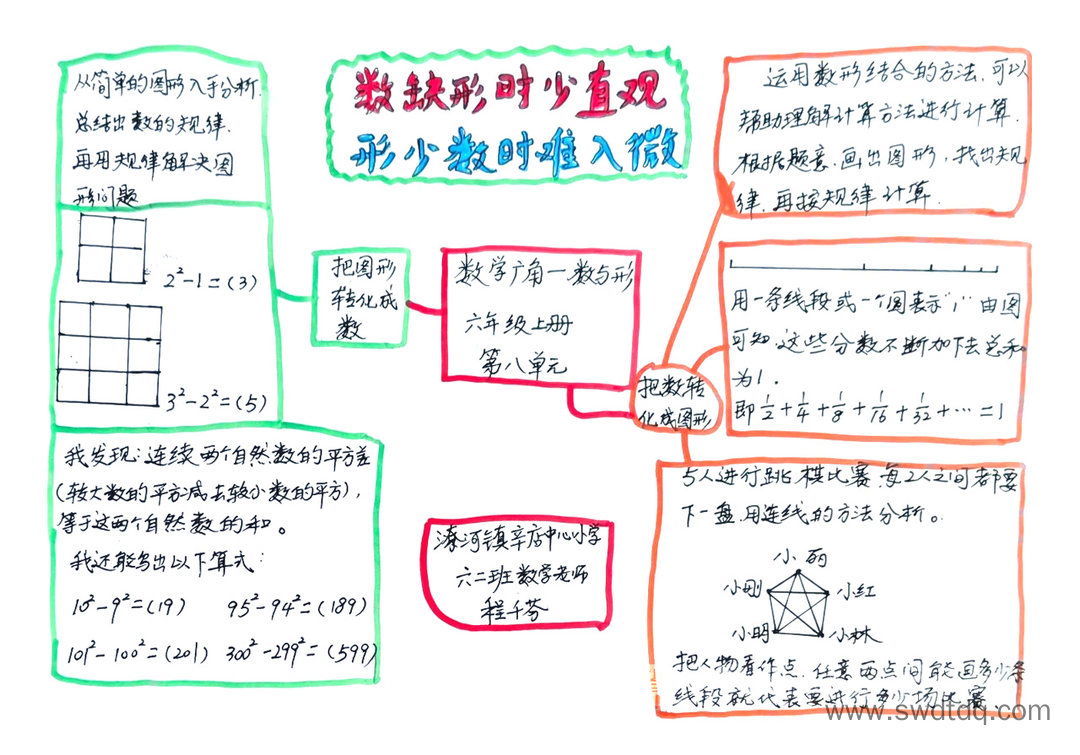 数缺形时少直观
形少数时难入微
从简单的图形入手分析.
总结出数的规律.
再用规律解决图
形问题
2²-1=(3)
3²-2²=(5)
把图形
转化成
数
我发现:连续两个自然数的平方差
(较大数的平方减去较小数的平方),
等于这两个自然数的和。
我还能写出以下算式:
10²-9²=(19) 95²-94²=(189)
101²-100²=(201) 300²-299²=(599)
数学广角一数与形
六年级上册
第八单元
把数转
化成图形
运用数形结合的方法,可以
帮助理解计算方法进行计算.
根据题意.画出图形,找出规
律.再按规律计算.
用一条线段或一个圆表示"1"由图
可知.这些分数不断加下去总和
为1.
即1/2+1/4+1/8+1/16+1/32+…=1
5人进行跳棋比赛.每2人之间都要
下一盘.用连线的方法分析。
小丽
小刚
小红
小明
小林
把人物看作点.任意两点间能画多少条
线段就代表要进行多少场比赛.
河镇辛店中心小学
六二班数学老师
程千芬
www.swdtdq.com